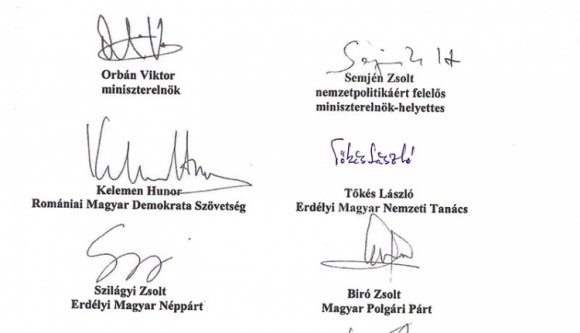 Orbán Viktor
miniszterelnök
Semjén Zsolt
nemzetpolitikáért felelős
miniszterelnök-helyettes
Kelemen Hunor
Romániai Magyar Demokrata Szövetség
Tőkés László
Tőkés László
Erdélyi Magyar Nemzeti Tanács
Szilágyi Zsolt
Erdélyi Magyar Néppárt
Biró Zsolt
Magyar Polgári Párt